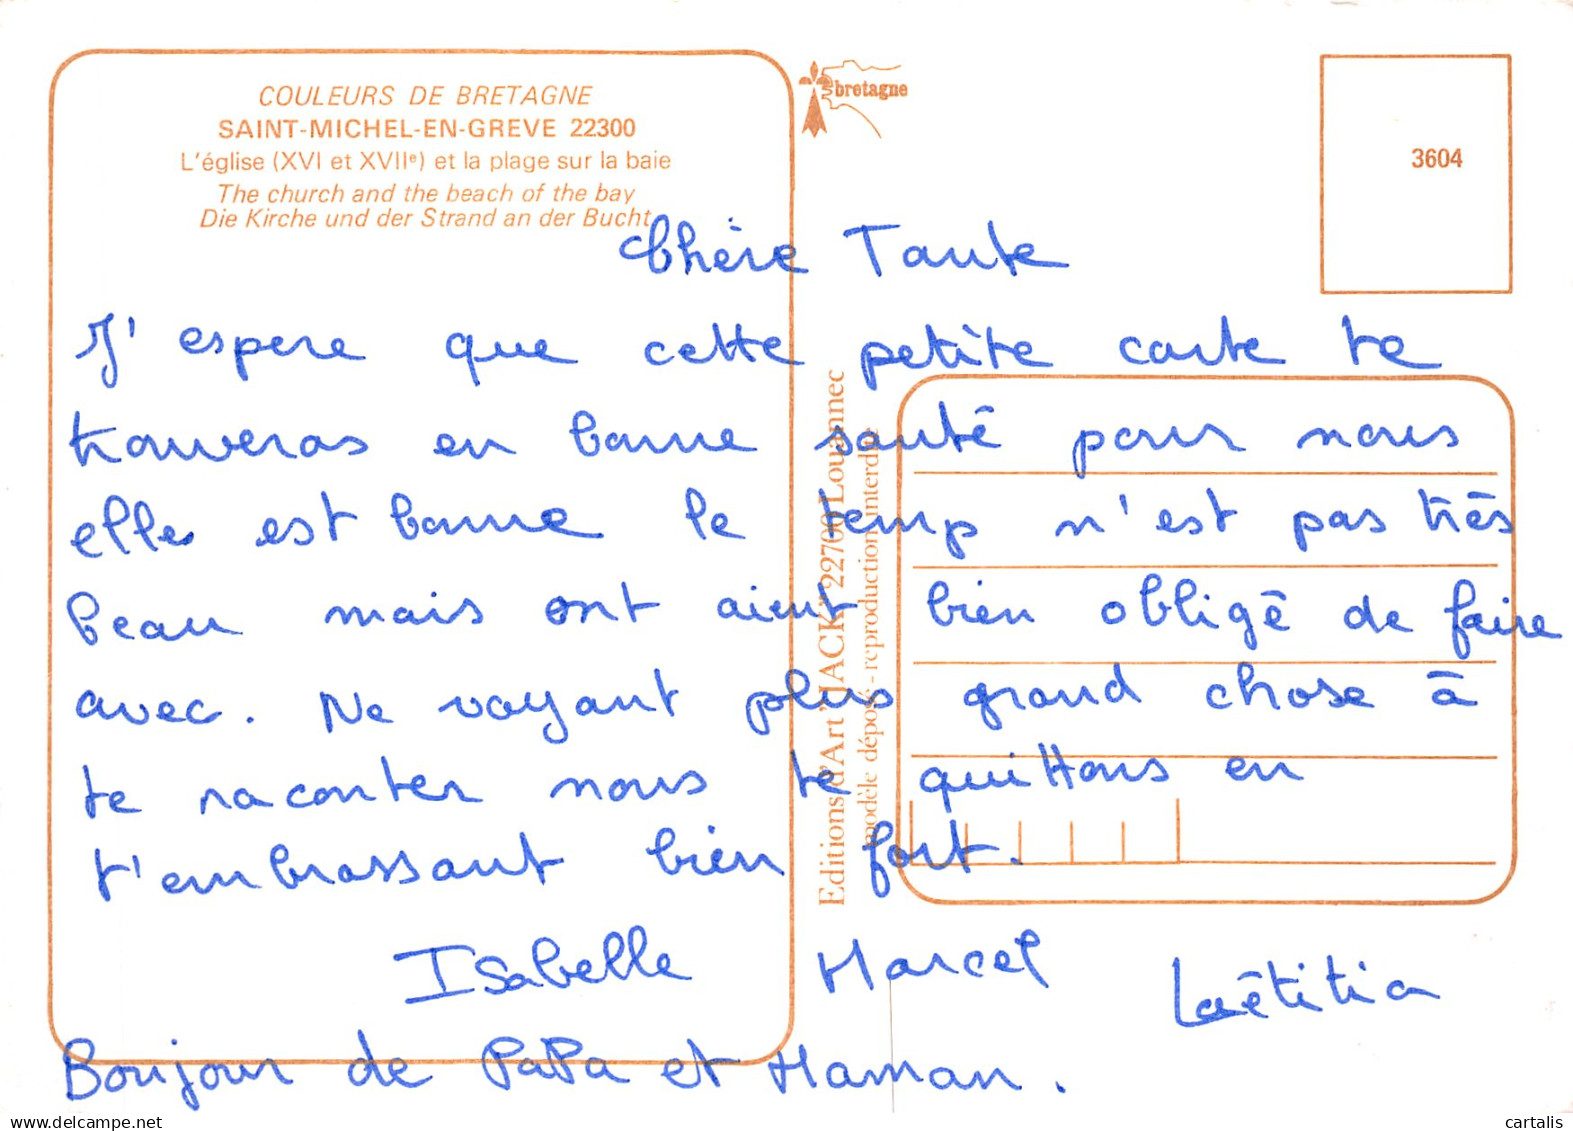 COULEURS DE BRETAGNE
SAINT-MICHEL-EN-GREVE 22300
L'église (XVI et XVIIe) et la plage sur la baie
The church and the beach of the bay
Die Kirche und der Strand an der Bucht
bretagne
3604
Chère Tante
J'espere que cette petite carte te
trouveras en bonne santé pour nous
elle est bonne le temp n'est pas très
beau mais ont aient bien obligé de faire
avec. Ne voyant plus grand chose à
te raconter nous te quittons en
t'embrassant bien fort.
Isabelle Marcel Laëtitia
Bonjour de PaPa et Maman.
Editions d'Art "JACK" 22700 Louannec
modèle déposé - reproduction interdite
cartalis